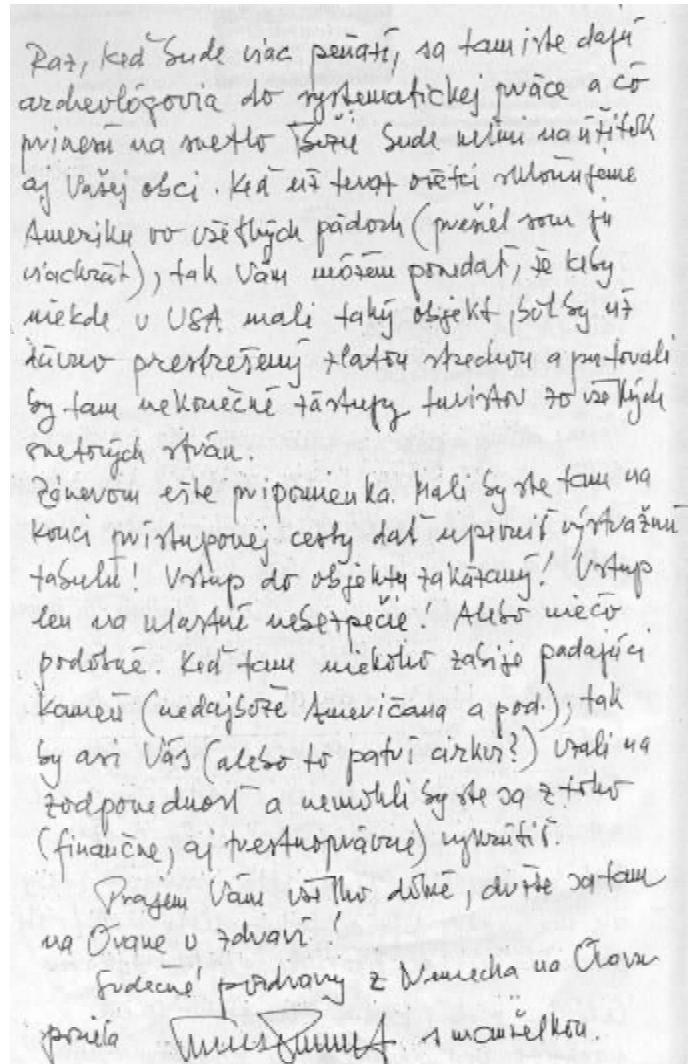 Raz, keď bude viac peňazí, sa tam iste dajú
archeológovia do systematickej práce a čo
prinesú na svetlo Božie bude veľmi na úžitok
aj Vašej obci. Keď už teraz všetci skloňujeme
Ameriku vo všetkých pádoch (prešiel som ju
viackrát), tak Vám môžem povedať, že keby
niekde v USA mali taký objekt, bol by už
dávno prestrešený zlatou strechou a putovali
by tam nekonečné zástupy turistov zo všetkých
svetových strán.
Záverom ešte pripomienka. Mali by ste tam na
konci prístupovej cesty dať upevniť výstražnú
tabuľu! Vstup do objektu zakázaný! Vstup
len na vlastné nebezpečie! Alebo niečo
podobné. Keď tam niekoho zabije padajúci
kameň (nedajbože Američana a pod.), tak
by asi Vás (alebo to patrí cirkvi?) vzali na
zodpovednosť a nemohli by ste sa z toho
(finančne, aj trestnoprávne) vykrútiť.
Prajem Vám všetko dobré, držte sa tam
na Orave v zdraví!
Srdečné pozdravy z Nemecka na Oravu
posiela s manželkou.